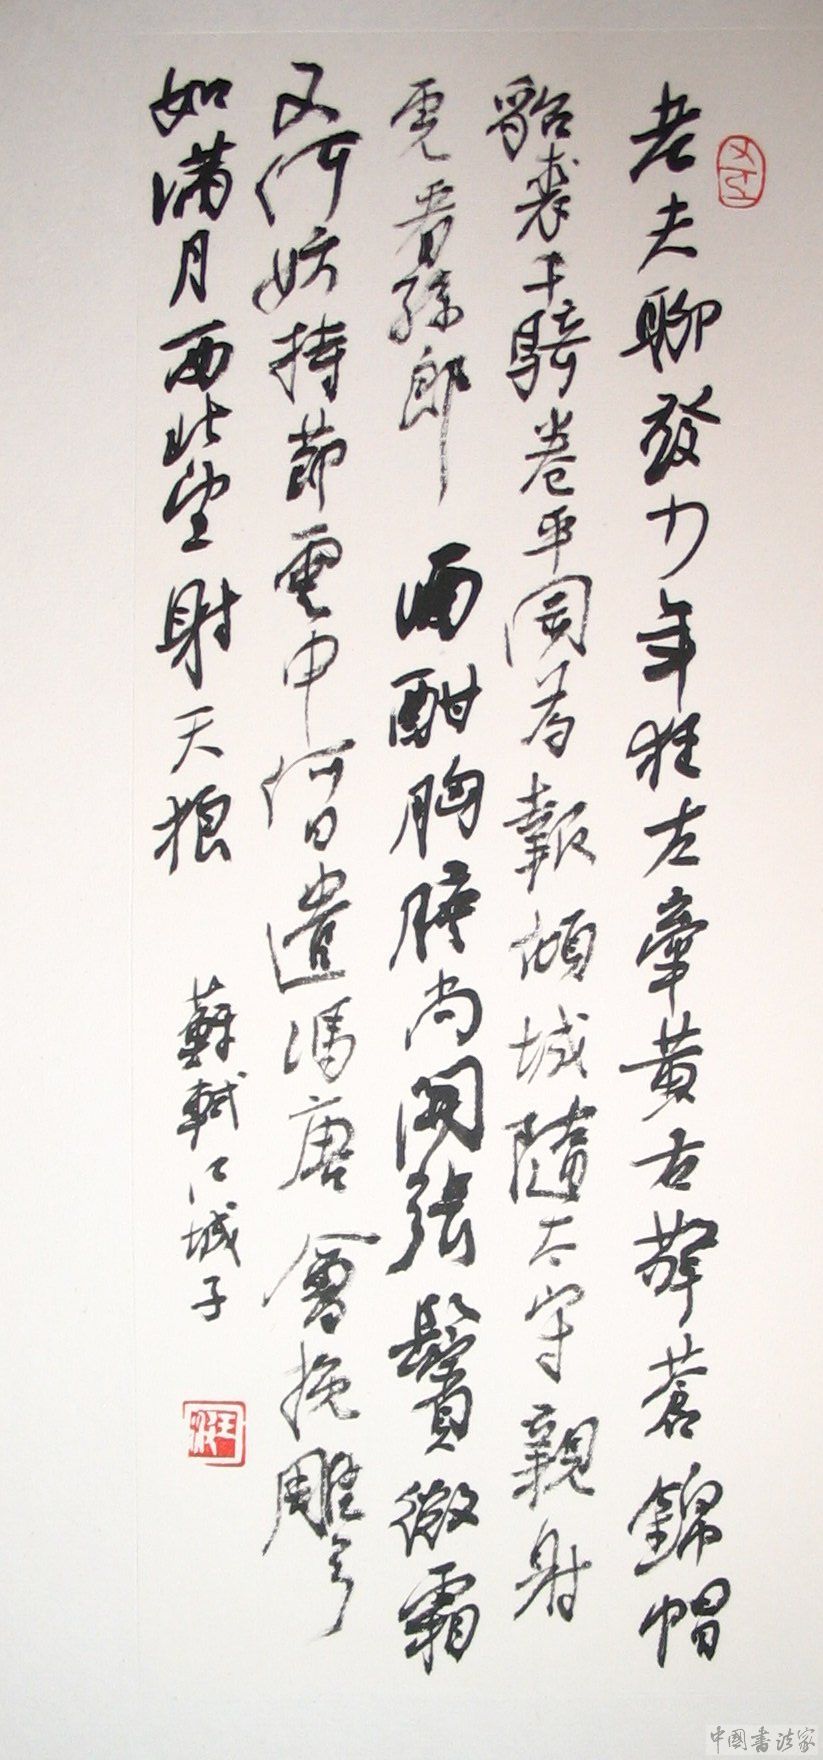 老夫聊發少年狂左牽黃右擎蒼錦帽
貂裘千騎卷平岡為報傾城隨太守親射
虎看孫郎 酒酣胸膽尚開張鬢微霜
又何妨持節雲中何日遣馮唐會挽雕弓
如滿月西北望射天狼
蘇軾江城子
中國書法家